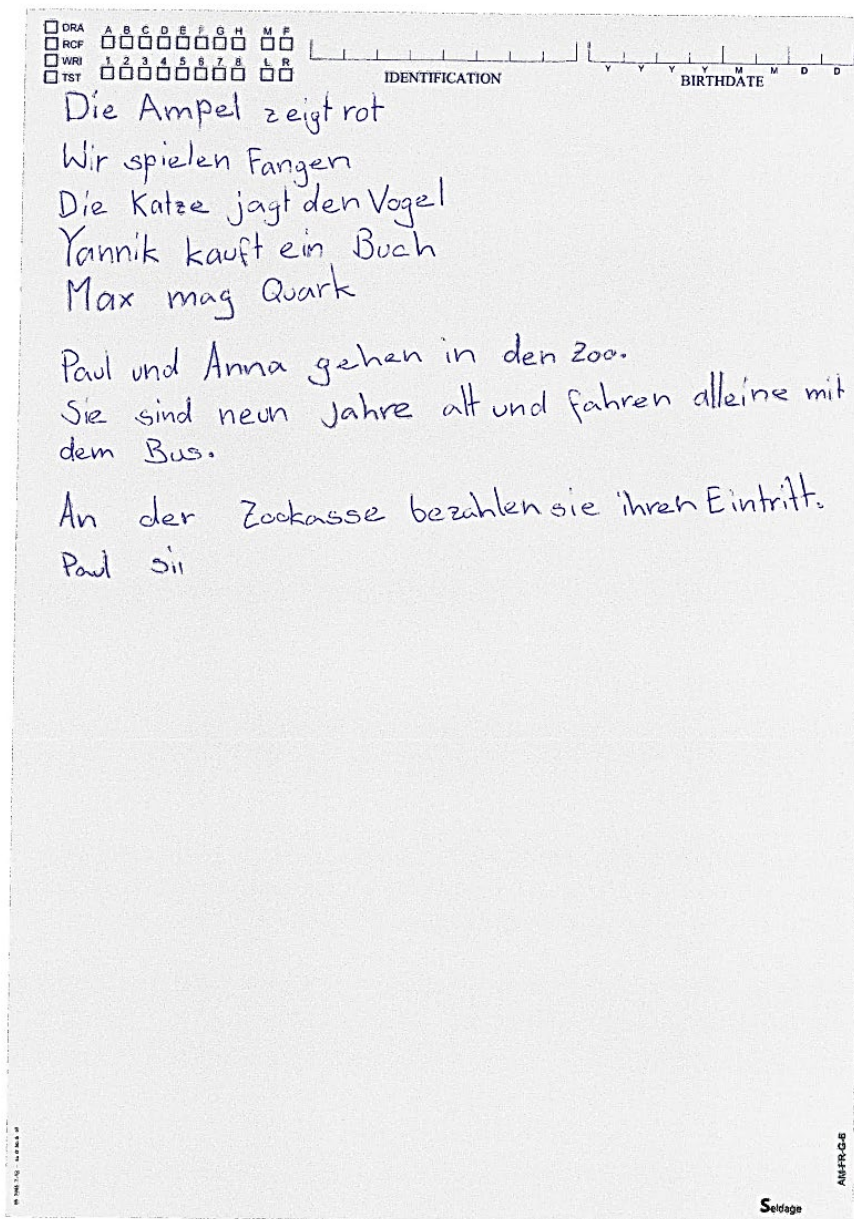 DRA A B C D E F G H M F
RCF
WRI 1 2 3 4 5 6 7 8 L R
TST
IDENTIFICATION
Y Y Y Y M M D D
BIRTHDATE
Die Ampel zeigt rot
Wir spielen Fangen
Die Katze jagt den Vogel
Yannik kauft ein Buch
Max mag Quark
Paul und Anna gehen in den Zoo.
Sie sind neun Jahre alt und fahren alleine mit
dem Bus.
An der Zookasse bezahlen sie ihren Eintritt.
Paul sii
AM-FR-G-6
Seldage